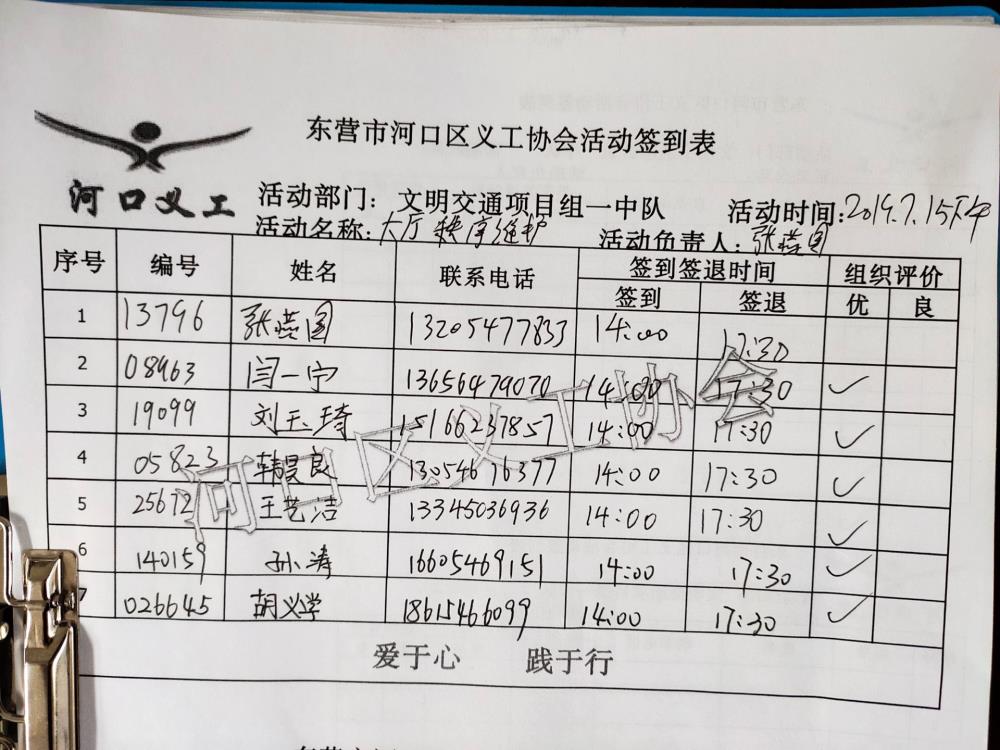 东营市河口区义工协会活动签到表
河口义工
活动部门：文明交通项目组一中队 活动时间：2019.7.15下午
活动名称：大厅秩序维护 活动负责人：张燕图
序号 编号 姓名 联系电话 签到签退时间 组织评价
签到 签退 优 良
1 13796 张燕图 13205477833 14:00 17:30
2 08963 闫一宁 13656479070 14:00 17:30 ✓
3 19099 刘玉琦 15166237857 14:00 17:30 ✓
4 05823 韩昊良 13054676377 14:00 17:30 ✓
5 25672 王艺洁 13345036936 14:00 17:30 ✓
6 140159 孙涛 16605469151 14:00 17:30 ✓
7 026645 胡义学 18615466099 14:00 17:30 ✓
河口区义工协会
爱于心 践于行